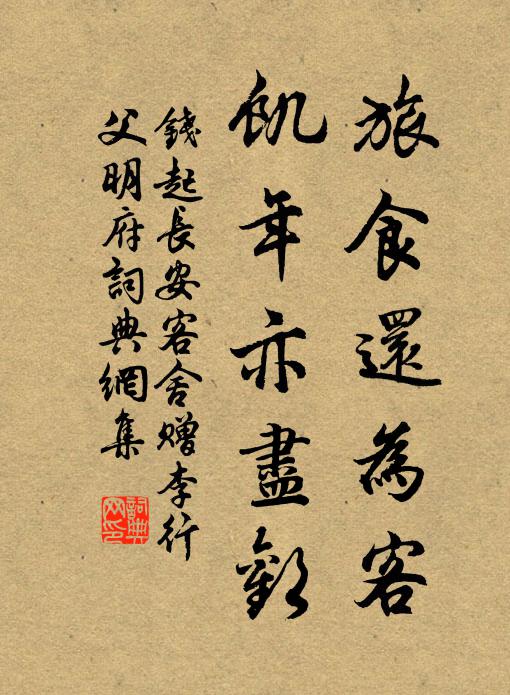 旅食還為客
飢年亦盡歡
錢起長安客舍贈李行
父明府詞典網集
詞典
网印